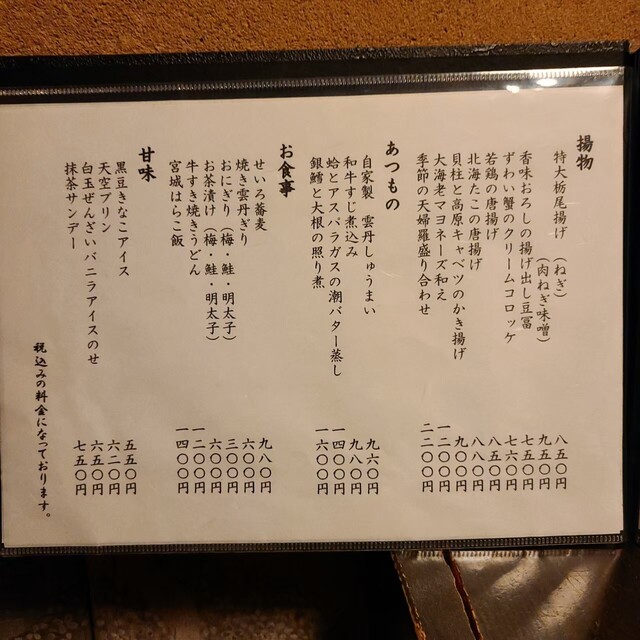 揚物
特大栃尾揚げ（ねぎ） 八五〇円
（肉ねぎ味噌） 九五〇円
香味おろしの揚げ出し豆冨 七五〇円
ずわい蟹のクリームコロッケ 七六〇円
若鶏の唐揚げ 八五〇円
北海たこの唐揚げ 八八〇円
貝柱と高原キャベツのかき揚げ 九〇〇円
大海老マヨネーズ和え 一二〇〇円
季節の天婦羅盛り合わせ 二二〇〇円
あつもの
自家製　雲丹しゅうまい 九六〇円
和牛すじ煮込み 九八〇円
蛤とアスパラガスの潮バター蒸し 一四〇〇円
銀鱈と大根の照り煮 一六〇〇円
お食事
せいろ蕎麦 九八〇円
焼き雲丹ぎり 六〇〇円
おにぎり（梅・鮭・明太子） 三〇〇円
お茶漬け（梅・鮭・明太子） 六〇〇円
牛すき焼きうどん 一二〇〇円
宮城はらこ飯 一四〇〇円
甘味
黒豆きなこアイス 五五〇円
天空プリン 六二〇円
白玉ぜんざいバニラアイスのせ 六五〇円
抹茶サンデー 七五〇円
税込みの料金になっております。